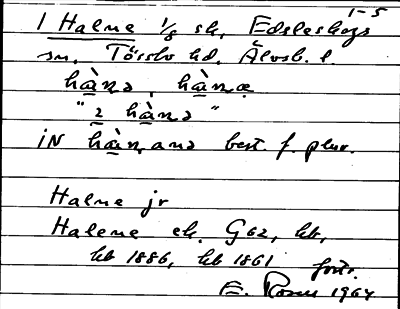 1-5
1 Halne 1/8 sk, Edsleskogs
sn. Tössbo hd. Älvsb. l.
hà̱nə, hà̱næ
"2 hà̱nə"
iN hà̱nana best. f. plur.
Halne jr
Halene ek. G62, kb,
kb 1886, kb 1861 forts.
E. Rosen 1964